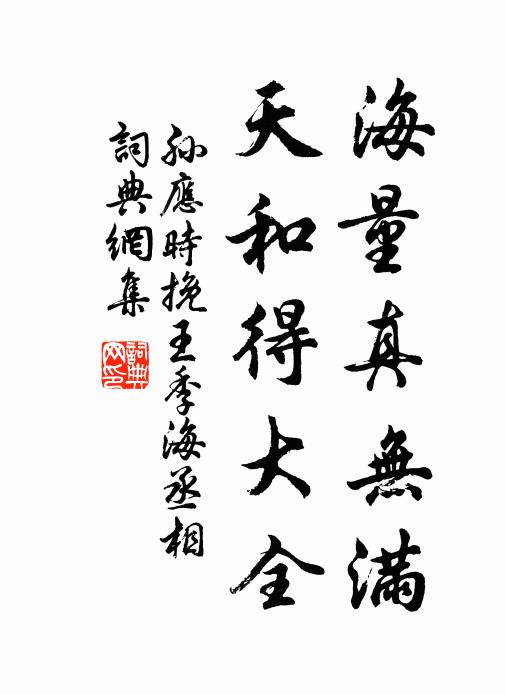 海量真無滿
天和得大全
孫應時挽王季海丞相
詞典網集
詞典网印